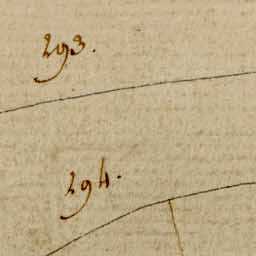 293.
294.